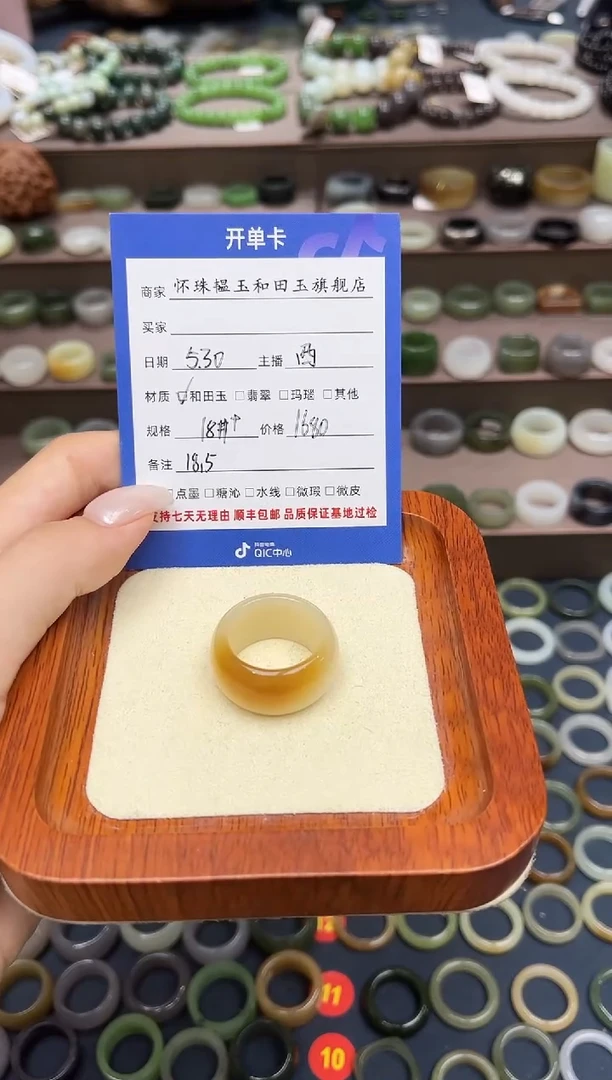 开单卡
商家 怀珠韫玉和田玉旗舰店
买家
日期 5.30 主播
材质 ☑和田玉 □翡翠 □玛瑙 □其他
规格 18#↑ 价格 1680
备注 18.5
点墨 □糖沁 □水线 □微瑕 □微皮
支持七天无理由 顺丰包邮 品质保证基地过检
抖音电商
QIC中心
12
11
10